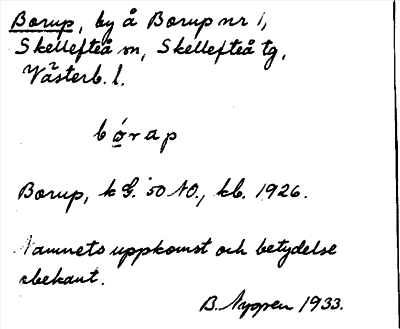 Borup, by å Borup nr 1,
Skellefteå sn, Skellefteå tg,
Västerb. l.
bórap
Borup, k G. 50 NO., kb. 1926.
Namnets uppkomst och betydelse
obekant.
B. 1933.